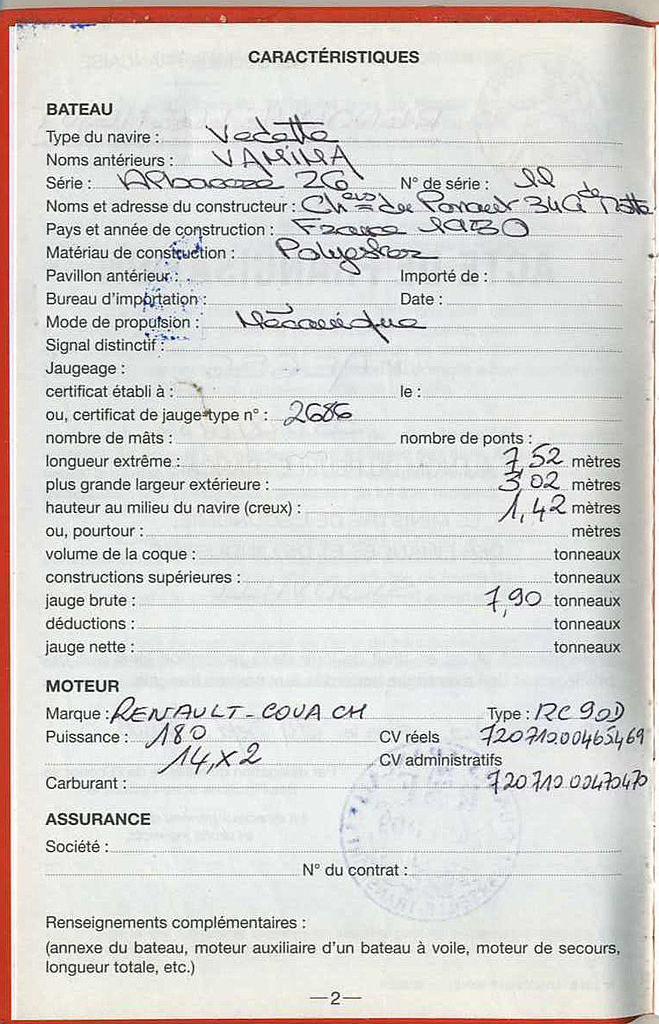 CARACTÉRISTIQUES
BATEAU
Type du navire : Vedette
Noms antérieurs : VAMIMA
Série : 26 N° de série : 11
Noms et adresse du constructeur : Ch du 34 G
Pays et année de construction : France 1980
Matériau de construction : Polyester
Pavillon antérieur : Importé de :
Bureau d'importation : Date :
Mode de propulsion : Mécanique
Signal distinctif :
Jaugeage :
certificat établi à : le :
ou, certificat de jauge-type n° : 2686
nombre de mâts : nombre de ponts :
longueur extrême : 7,52 mètres
plus grande largeur extérieure : 3,02 mètres
hauteur au milieu du navire (creux) : 1,42 mètres
ou, pourtour : mètres
volume de la coque : tonneaux
constructions supérieures : tonneaux
jauge brute : 7,90 tonneaux
déductions : tonneaux
jauge nette : tonneaux
MOTEUR
Marque : RENAULT-COUACH Type : RC 90D
Puissance : 180 CV réels 720710.00465469
14,X2 CV administratifs
Carburant : 720710 00470470
ASSURANCE
Société :
N° du contrat :
Renseignements complémentaires :
(annexe du bateau, moteur auxiliaire d'un bateau à voile, moteur de secours,
longueur totale, etc.)
—2—